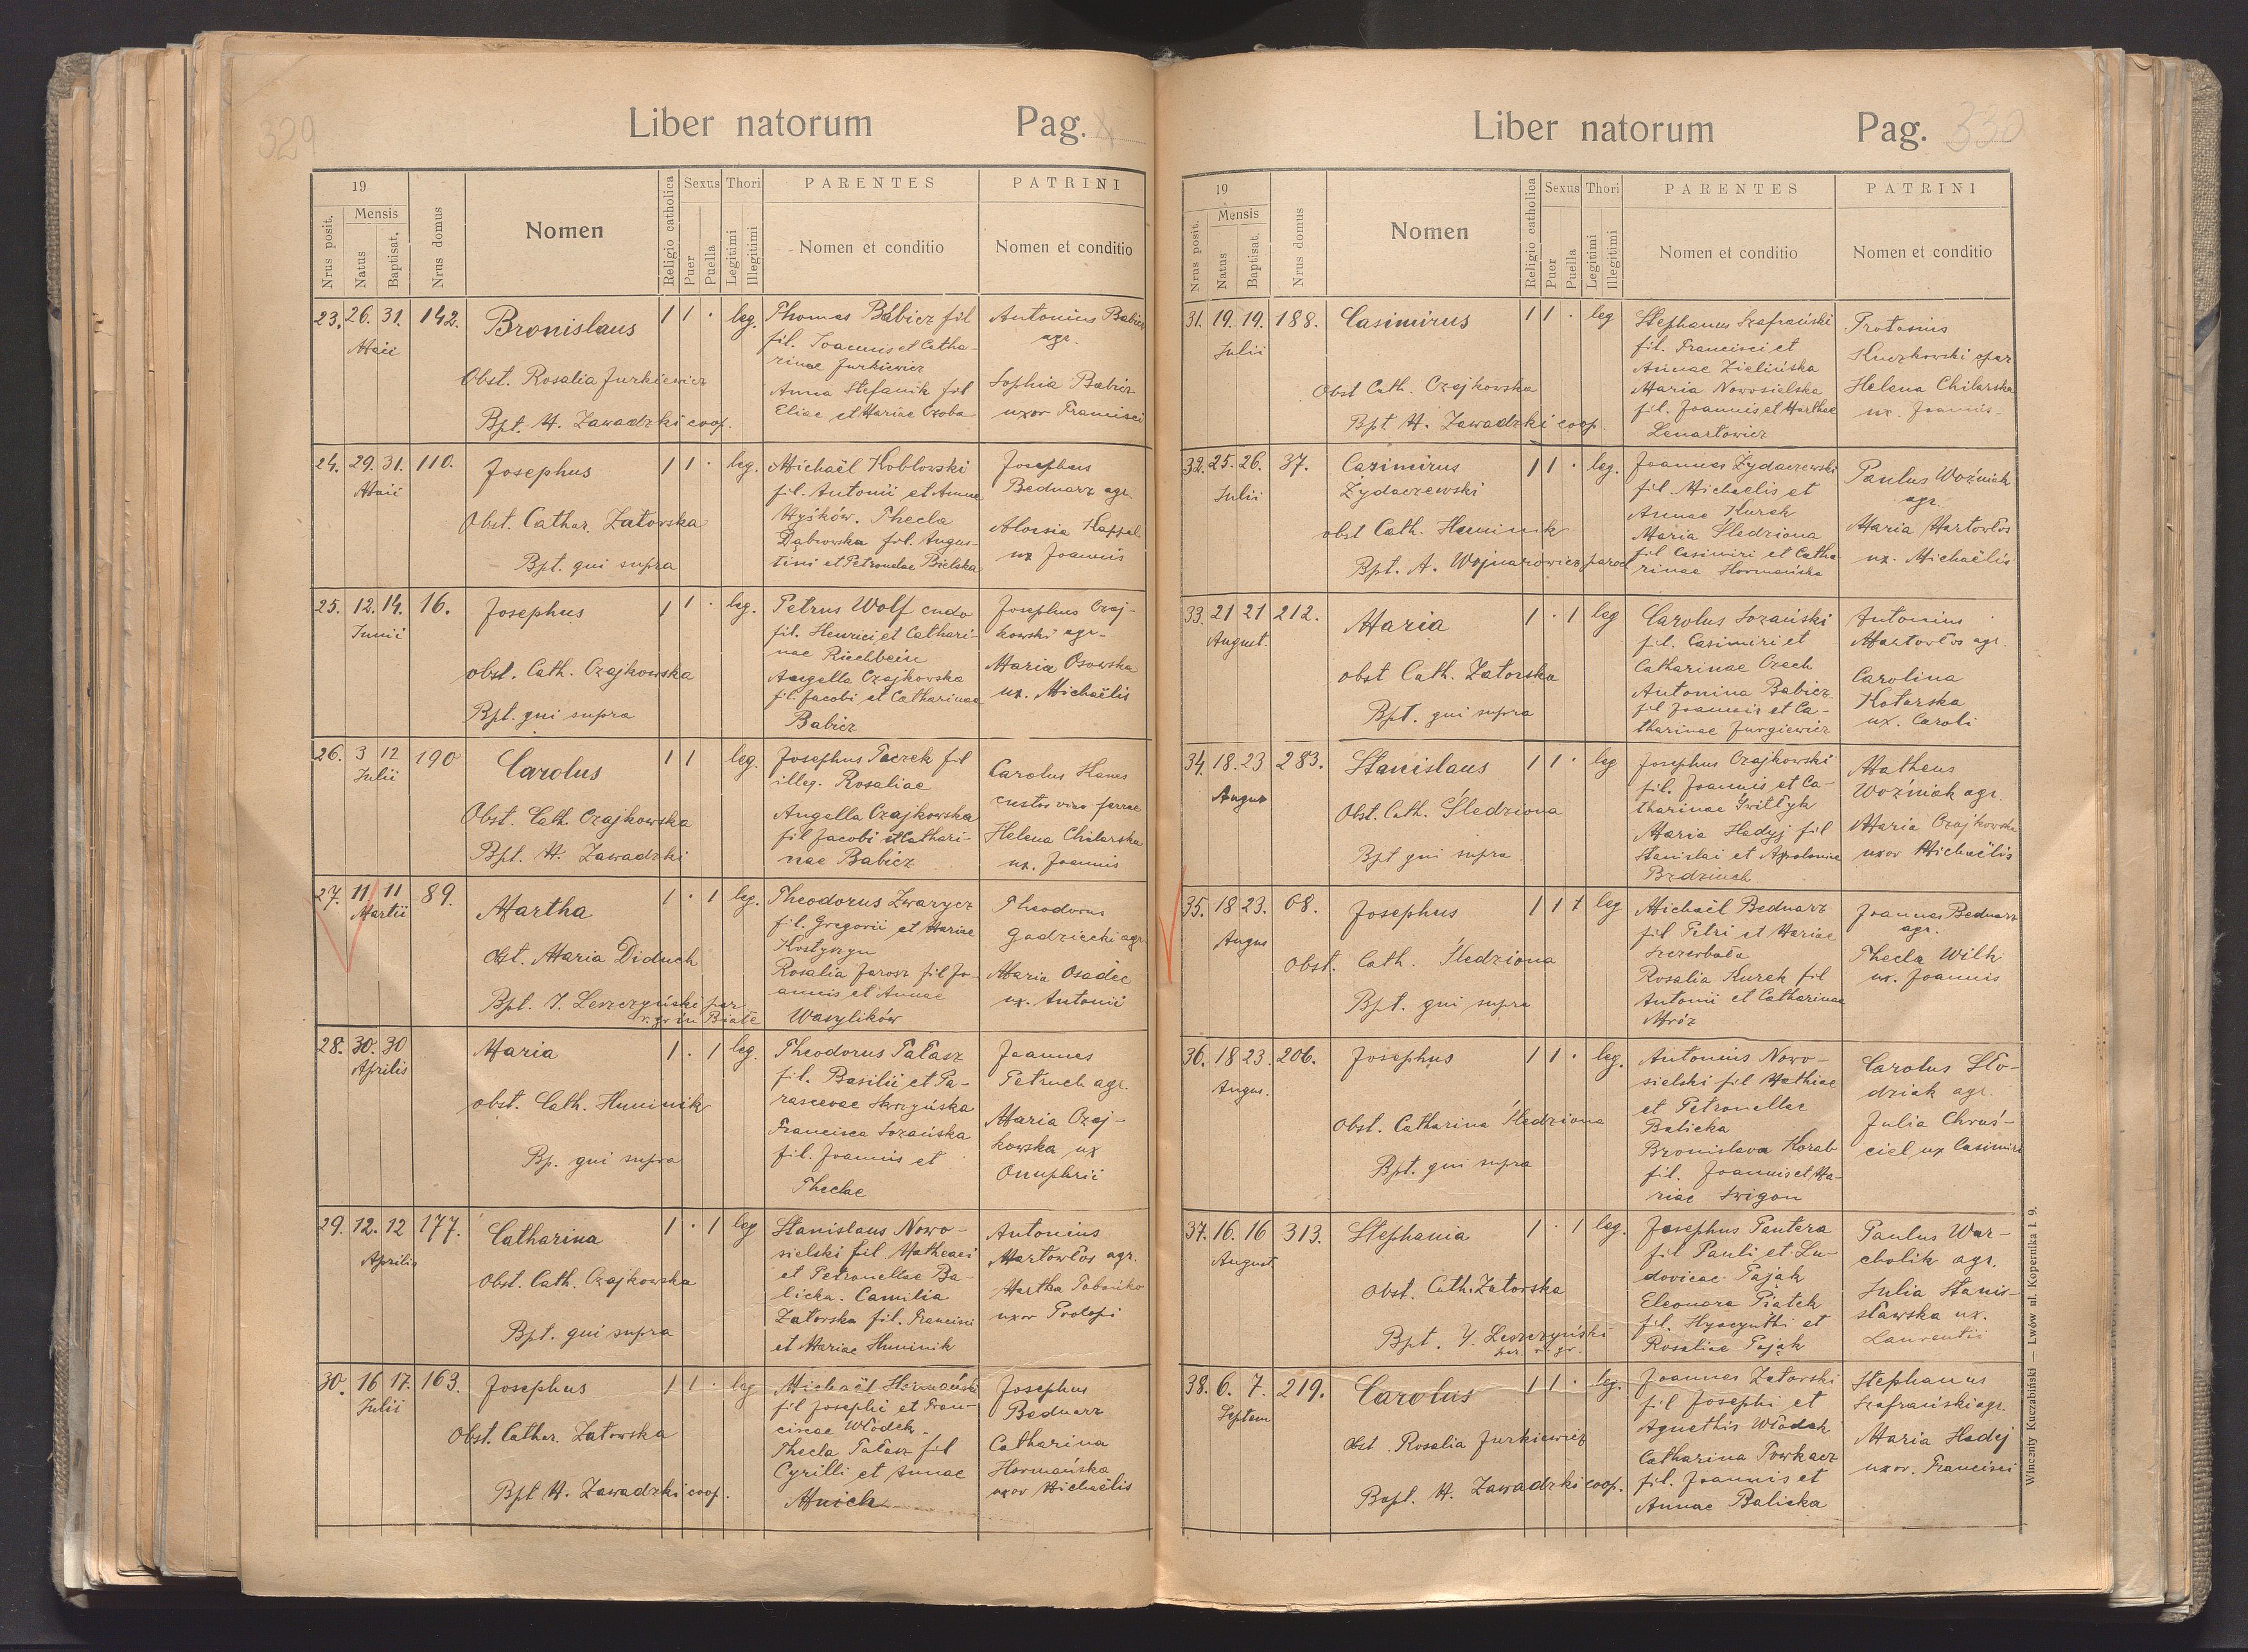 329
Liber natorum Pag.
19
Nrus posit.
Mensis
Natus
Baptisat.
Nrus domus
Nomen
Religio catholica
Sexus
Puer
Puella
Thori
Legitimi
Illegitimi
PARENTES
Nomen et conditio
PATRINI
Nomen et conditio
23. 26. 31. 142. Bronislaus 1 1 . leg.
Maii
Obst. Rosalia Jurkiewicz
Bpt. M. Zawadzki coop.
Thomas Babicz fil
fil. Joannis et Catha-
rinae Jurkiewicz
Anna Stefanik fil
Eliae et Mariae Czoba
Antonius Babicz
agr.
Sophia Babicz
uxor Francisci
24. 29. 31. 110. Josephus 1 1 . leg.
Maii
Obst. Cathar. Zatorska
Bpt. qui supra
Michaël Koblowski
fil. Antonii et Annae
Wyśków. Thecla
Dąbrowska fil. Augus-
tini et Petronelae Bielska
Josephus
Bednarz agr.
Aloisia Kappel
ux Joannis
25. 12. 14. 16. Josephus 1 1 . leg.
Junii
obst. Cath. Czajkowska
Bpt. qui supra
Petrus Wolf cudo
fil. Henrici et Cathari-
nae Riechbein
Angella Czajkowska
fil. Jacobi et Catharinae
Babicz
Josephus Czaj-
kowski agr.
Maria Osowska
ux. Michaëlis
26. 3 12 190 Carolus 1 1 leg.
Julii
Obst. Cath. Czajkowska
Bpt. M. Zawadzki
Josephus Paczek fil
illeg. Rosaliae
Angella Czajkowska
fil Jacobi et Cathari-
nae Babicz
Carolus Hanes
custos viae ferrae
Helena Chilarska
ux. Joannis
27. 11. 11 89. Martha 1 . 1 leg.
Martii
Obst. Maria Diduch
Bpt. J. Leszczyński par
r. gr in Białe
Theodorus Zwarycz
fil. Gregorii et Mariae
Kostyszyn
Rosalia Jarosz fil Jo-
annis et Annae
Wasylików
Theodorus
Gadziecki agr
Maria Osadec
ux. Antonii
28. 30. 30 Maria 1 . 1 leg.
Aprilis
obst. Cath. Huminik
Bp. qui supra
Theodorus Pałasz
fil. Basilii et Pa-
rascevae Skrzyńska
Francisca Sozańska
fil. Joannis et
Theclae
Joannes
Petruch agr.
Maria Czaj-
kowska ux
Onuphrii
29. 12. 12 177. Catharina 1 . 1 leg
Aprilis
Obst. Cath. Czajkowska
Bpt. qui supra
Stanislaus Nowo-
sielski fil. Matheaei
et Petronellae Ba-
licka. Camilia
Zatorska fil. Francisci
et Mariae Huminik
Antonius
Martowłos agr.
Martha
uxor
30. 16 17. 163. Josephus 1 1 . leg
Julii
Obst. Cathar. Zatorska
Bpt M. Zawadzki coop.
Michaël Hormański
fil Josephi et Fran-
ciscae Włodek.
Thecla Pałasz fil
Cyrilli et Annae
Mnich
Josephus
Bednarz
Catharina
Hormańska
uxor Michaëlis
Liber natorum Pag. 330
19
Nrus posit.
Mensis
Natus
Baptisat.
Nrus domus
Nomen
Religio catholica
Sexus
Puer
Puella
Thori
Legitimi
Illegitimi
PARENTES
Nomen et conditio
PATRINI
Nomen et conditio
31. 19. 19. 188. Casimirus 1 1 . leg
Julii
Obst Cath. Czajkowska
Bpt M. Zawadzki coop.
Stephanus Szafrański
fil. Francisci et
Annae Zielińska
Maria Nowosielska
fil. Joannis et Marthae
Lenartowicz
Protasius
Kuczkowski
Helena Chilarska
ux. Joannis.
32. 25. 26. 37. Casimirus 1 1 . leg.
Julii
Żydaczewski
obst Cath. Huminik
Bpt. A. Wojnarowicz paroch
Joannes Żydaczewski
fil. Michaelis et
Annae Kurek
Maria Śledziona
fil Casimiri et Catha
rinae Hormańska
Paulus Woźniak
agr.
Maria Martowłos
ux. Michaëlis
33. 21 21 212. Maria 1 . 1 leg
August.
obst Cath. Zatorska
Bpt. qui supra
Carolus Sozański
fil. Casimiri et
Catharinae Czech
Antonina Babicz
fil Joannis et Ca-
tharinae Jurgiewicz
Antonius
Martowłos agr.
Carolina
Kotarska
ux. Caroli
34. 18. 23 283. Stanislaus 1 1 . leg
Augus
Obst. Cath. Śledziona
Bpt qui supra
Josephus Czajkowski
fil. Joannis et Ca-
tharinae Świtłyk
Maria Hadyj fil
Stanislai et Apolonia
Brdziuch
Matheus
Woźniak agr.
Maria Czajkowska
uxor Michaëlis
35. 18 23. 68. Josephus 1 1 1 leg
Augus
Obst. Cath. Śledziona
Bpt. qui supra
Michaël Bednarz
fil Petri et Mariae
Szczerbała
Rosalia Kurek fil
Antonii et Catharinae
Mróz
Joannes Bednarz
agr.
Thecla Wilk
ux. Joannis
36. 18 23. 206. Josephus 1 1 . leg.
Augus.
Obst. Catharina Śledziona
Bpt. qui supra
Antonius Nowo-
sielski fil Mathiae
et Petronellae
Balicka
Bronislava Korab
fil. Joannis et Ma-
riae Swigon
Carolus Sło-
dziak agr.
Julia Chruś-
ciel ux Casimiri
37. 16. 16 313. Stephania 1 . 1 leg.
August
Obst. Cath. Zatorska
Bpt. Y. Leszczyński
par. r. gr.
Josephus Pantera
fil Pauli et Lu-
dovicae Pająk
Eleonora Piątek
fil. Hyacynthi et
Rosaliae Pająk
Paulus War-
cholik agr.
Julia Stanis-
sławska ux.
Laurentii
38. 6. 7. 219. Carolus 1 1 . leg.
Septem
Obst. Rosalia Jurkiewicz
Bapt. M. Zawadzki coop.
Joannes Zatorski
fil Josephi et
Agnethis Włodek
Catharina Powkacz
fil. Joannis et
Annae Balicka
Stephanus
Szafrański agr.
Maria Hadej
uxor. Francisci
Winczenty Kuczabiński — Lwów ul. Kopernika l. 9.